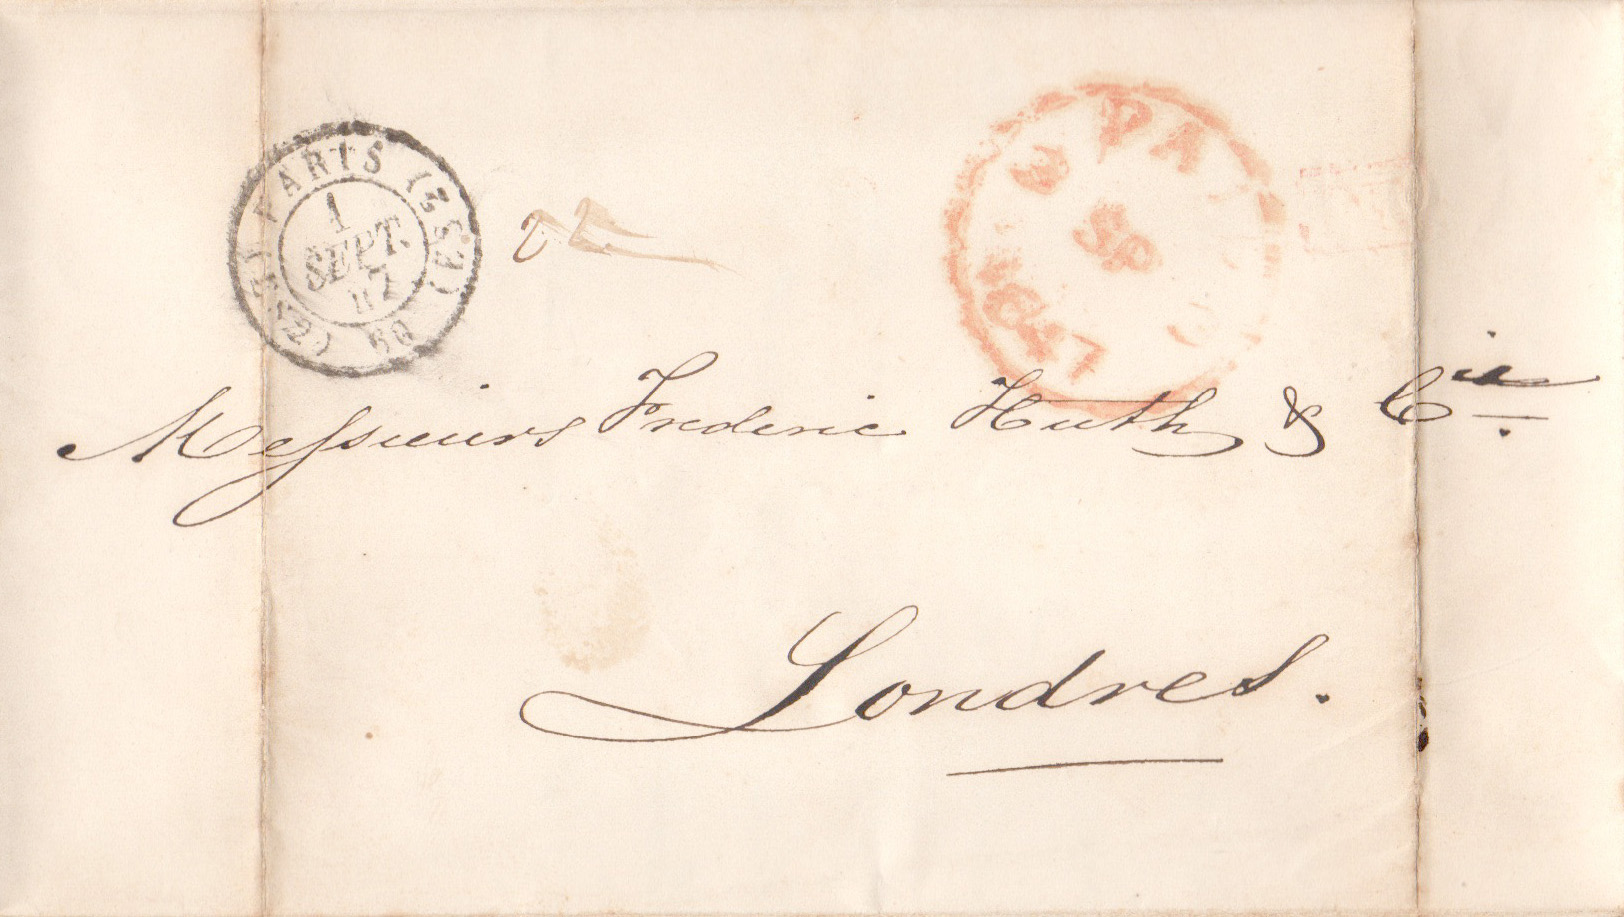 PARIS
1
SEPT.
47
60
PA
3
SP
1847
Messieurs Frederic Huth & Cie.
Londres.